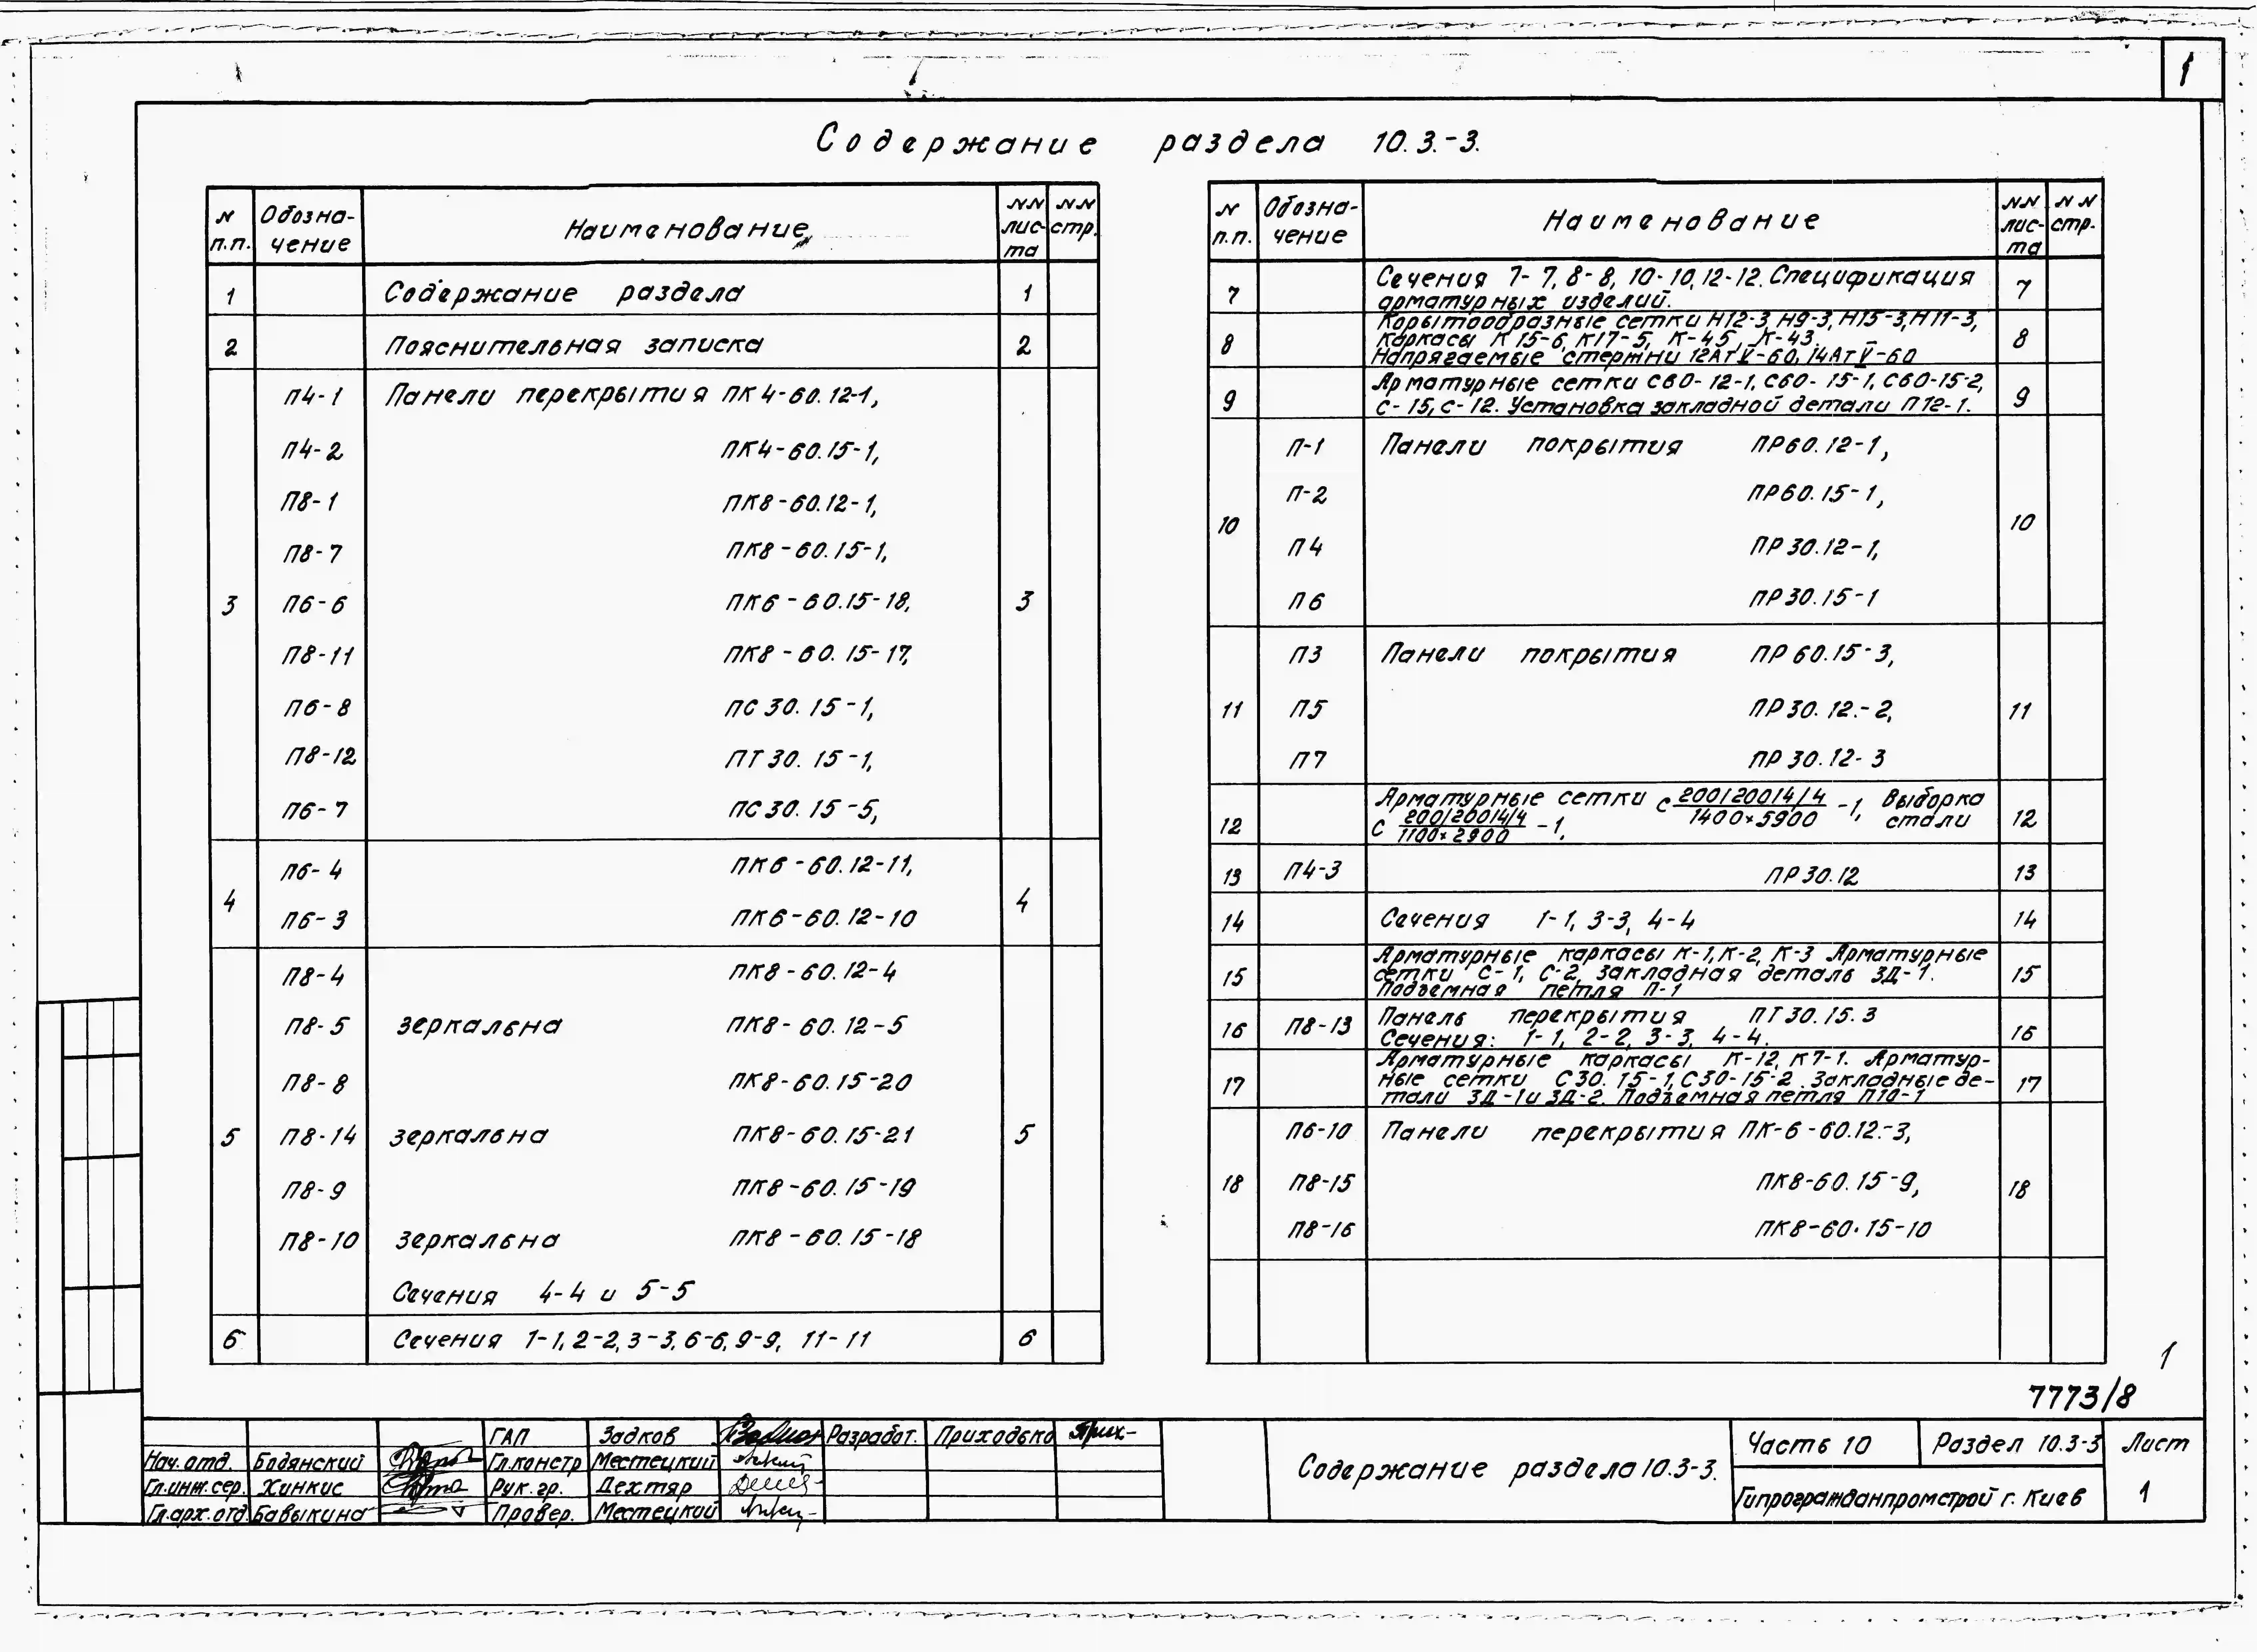 1
Содержание раздела 10.3.-3.
N п.п. Обозна-чение Наименование NN лис-та NN стр.
1 Содержание раздела 1
2 Пояснительная записка 2
П4-1 Панели перекрытия ПК4-60.12-1,
П4-2 ПК4-60.15-1,
П8-1 ПК8-60.12-1,
П8-7 ПК8-60.15-1,
3 П6-6 ПК6-60.15-18, 3
П8-11 ПК8-60.15-17,
П6-8 ПС30.15-1,
П8-12 ПТ30.15-1,
П6-7 ПС30.15-5,
П6-4 ПК6-60.12-11,
4 4
П6-3 ПК6-60.12-10
П8-4 ПК8-60.12-4
П8-5 зеркальна ПК8-60.12-5
П8-8 ПК8-60.15-20
5 П8-14 зеркальна ПК8-60.15-21 5
П8-9 ПК8-60.15-19
П8-10 зеркальна ПК8-60.15-18
Сечения 4-4 и 5-5
6 Сечения 1-1, 2-2, 3-3, 6-6, 9-9, 11-11 6
N п.п. Обозна-чение Наименование NN лис-та NN стр.
7 Сечения 7-7, 8-8, 10-10, 12-12. Спецификация 7
арматурных изделий.
Корытообразные сетки Н12-3, Н9-3, Н15-3, Н11-3,
8 Каркасы К15-6, К17-5, К-45, К-43. 8
Напрягаемые стержни 12АтV-60, 14АтV-60
Арматурные сетки С60-12-1, С60-15-1, С60-15-2,
9 С-15, С-12. Установка закладной детали П12-1. 9
П-1 Панели покрытия ПР60.12-1,
П-2 ПР60.15-1,
10 10
П4 ПР30.12-1,
П6 ПР30.15-1
П3 Панели покрытия ПР60.15-3,
11 П5 ПР30.12.-2, 11
П7 ПР30.12-3
Арматурные сетки С 200/200/4/4 / 1400×5900 -1, Выборка
12 С 200/200/4/4 / 1100×2900 -1, стали 12
13 П4-3 ПР30.12 13
14 Сечения 1-1, 3-3, 4-4 14
Арматурные каркасы К-1, К-2, К-3 Арматурные
15 сетки С-1, С-2, закладная деталь ЗД-1. 15
Подъемная петля П-1
16 П8-13 Панель перекрытия ПТ30.15.3 16
Сечения: 1-1, 2-2, 3-3, 4-4.
Арматурные каркасы К-12, К7-1. Арматур-
17 ные сетки С30.15-1, С30-15-2. Закладные де- 17
тали ЗД-1 и ЗД-2. Подъемная петля П10-1
П6-10 Панели перекрытия ПК-6-60.12.-3,
18 П8-15 ПК8-60.15-9, 18
П8-16 ПК8-60.15-10
1
7773/8
ГАП Задков Разработ. Приходько Прих-
Нач.отд. Бодянский Гл.констр Местецкий
Гл.инж.сер. Хинкис Рук.гр. Дехтяр
Гл.арх.отд Бавыкина Провер. Местецкий
Содержание раздела 10.3-3.
Часть 10 Раздел 10.3-3 Лист
Гипрогражданпромстрой г. Киев 1